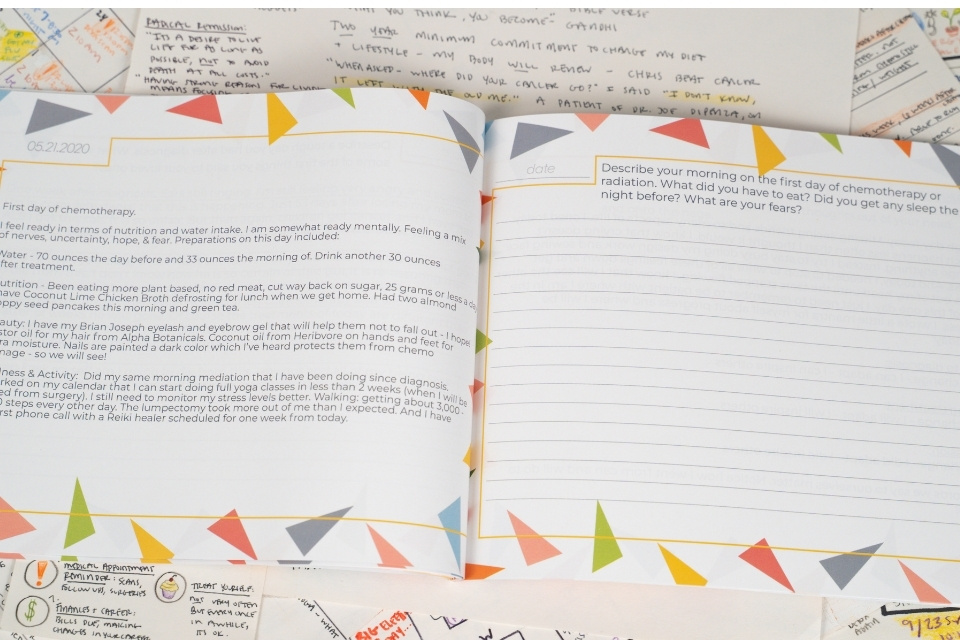 RADICAL REMISSION:
"IT'S A DESIRE TO LIVE
LIFE FOR AS LONG AS
POSSIBLE, NOT TO AVOID
DEATH AT ALL COSTS."
"HAVING STRONG REASONS FOR LIVING
MEANS FOCUSING
WHAT YOU THINK, YOU BECOME" - GANDHI
TWO YEAR MINIMUM COMMITMENT TO CHANGE MY DIET
+ LIFESTYLE - MY BODY WILL RENEW - CHRIS BEAT CANCER
"WHEN ASKED - WHERE DID YOUR CANCER GO?" I SAID "I DON'T KNOW,
IT LEFT WITH THE OLD ME." A PATIENT OF DR. JOE DISPENZA,
05.21.2020
First day of chemotherapy.
I feel ready in terms of nutrition and water intake. I am somewhat ready mentally. Feeling a mix
of nerves, uncertainty, hope, & fear. Preparations on this day included:
Water - 70 ounces the day before and 33 ounces the morning of. Drink another 30 ounces
fter treatment.
utrition - Been eating more plant based, no red meat, cut way back on sugar, 25 grams or less a d
ave Coconut Lime Chicken Broth defrosting for lunch when we get home. Had two almond
oppy seed pancakes this morning and green tea.
auty: I have my Brian Joseph eyelash and eyebrow gel that will help them not to fall out - I hope!
stor oil for my hair from Alpha Botanicals. Coconut oil from Heribvore on hands and feet for
ra moisture. Nails are painted a dark color which I've heard protects them from chemo
mage - so we will see!
lness & Activity: Did my same morning mediation that I have been doing since diagnosis,
rked on my calendar that I can start doing full yoga classes in less than 2 weeks (when I will be
ed from surgery). I still need to monitor my stress levels better. Walking: getting about 3,000 -
0 steps every other day. The lumpectomy took more out of me than I expected. And I have
rst phone call with a Reiki healer scheduled for one week from today.
date
Describe your morning on the first day of chemotherapy or
radiation. What did you have to eat? Did you get any sleep the
night before? What are your fears?
MEDICAL APPOINTMENT
REMINDER: SCANS,
FOLLOW UPS, SURGERIES
FINANCES + CAREER:
BILLS DUE, MAKING
CHANGES IN YOUR CAREER
TREAT YOURSELF:
NOT VERY OFTEN
BUT EVERY ONCE
IN AWHILE,
IT'S OK.
9/23